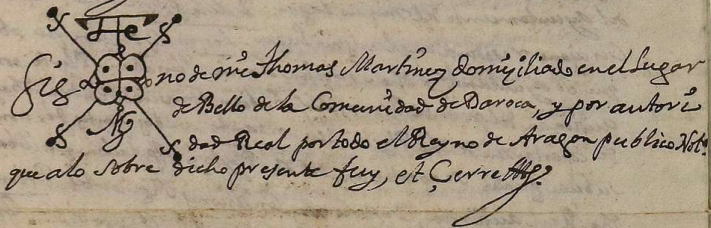 Sig no de mi Thomas Martinez domiciliado en el Lugar
de Bello de la Comunidad de Daroca, y por autori
dad Real por todo el Reyno de Aragon publico Not.º
que a lo sobre dicho presente fuy, et Çerre